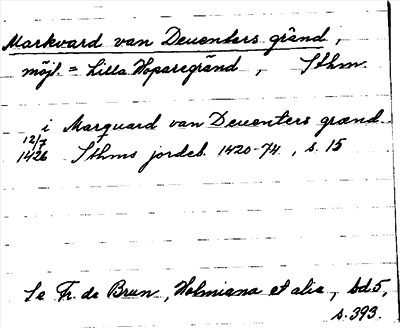 Markvard van Deventers gränd,
möjl. = Lilla Hoparegränd, Sthm.
i Marquard van Deventers grænd.
12/7
1426 Sthms jordeb. 1420-74, s. 15
Se Fr. de Brun, Holmiana et alia, bd 5,
s. 393.